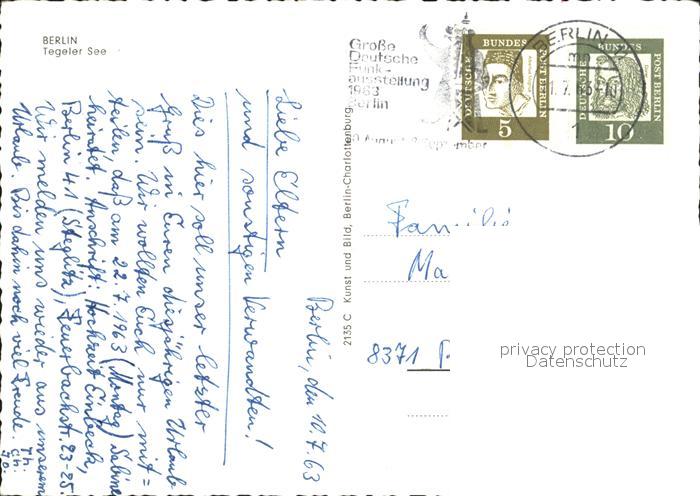 BERLIN
Tegeler See
Große
Deutsche
Funk-
ausstellung
1963
Berlin
30. August-8. September
BERLIN
1
DEUTSCHE
BUNDES
POST BERLIN
5
DEUTSCHE
BUNDES
POST BERLIN
10
Berlin, den 10.7.63
Liebe Eltern
und sonstigen Verwandten!
Dies hier soll unser letzter
Gruß in Euren diesjährigen Urlaub
sein. Wir wollten Euch nur mit=
teilen daß am 22.7.1963 (Montag) Sabine
heiratet. Anschrift: Hochzeit Einbeck,
Berlin 41 (Steglitz), Feuerbachstr. 23-25
Wir melden uns wieder aus unserem
Urlaub. Bis dahin noch viel Freude.
2135 C Kunst und Bild, Berlin-Charlottenburg
Familie
Ma
8371
privacy protection
Datenschutz